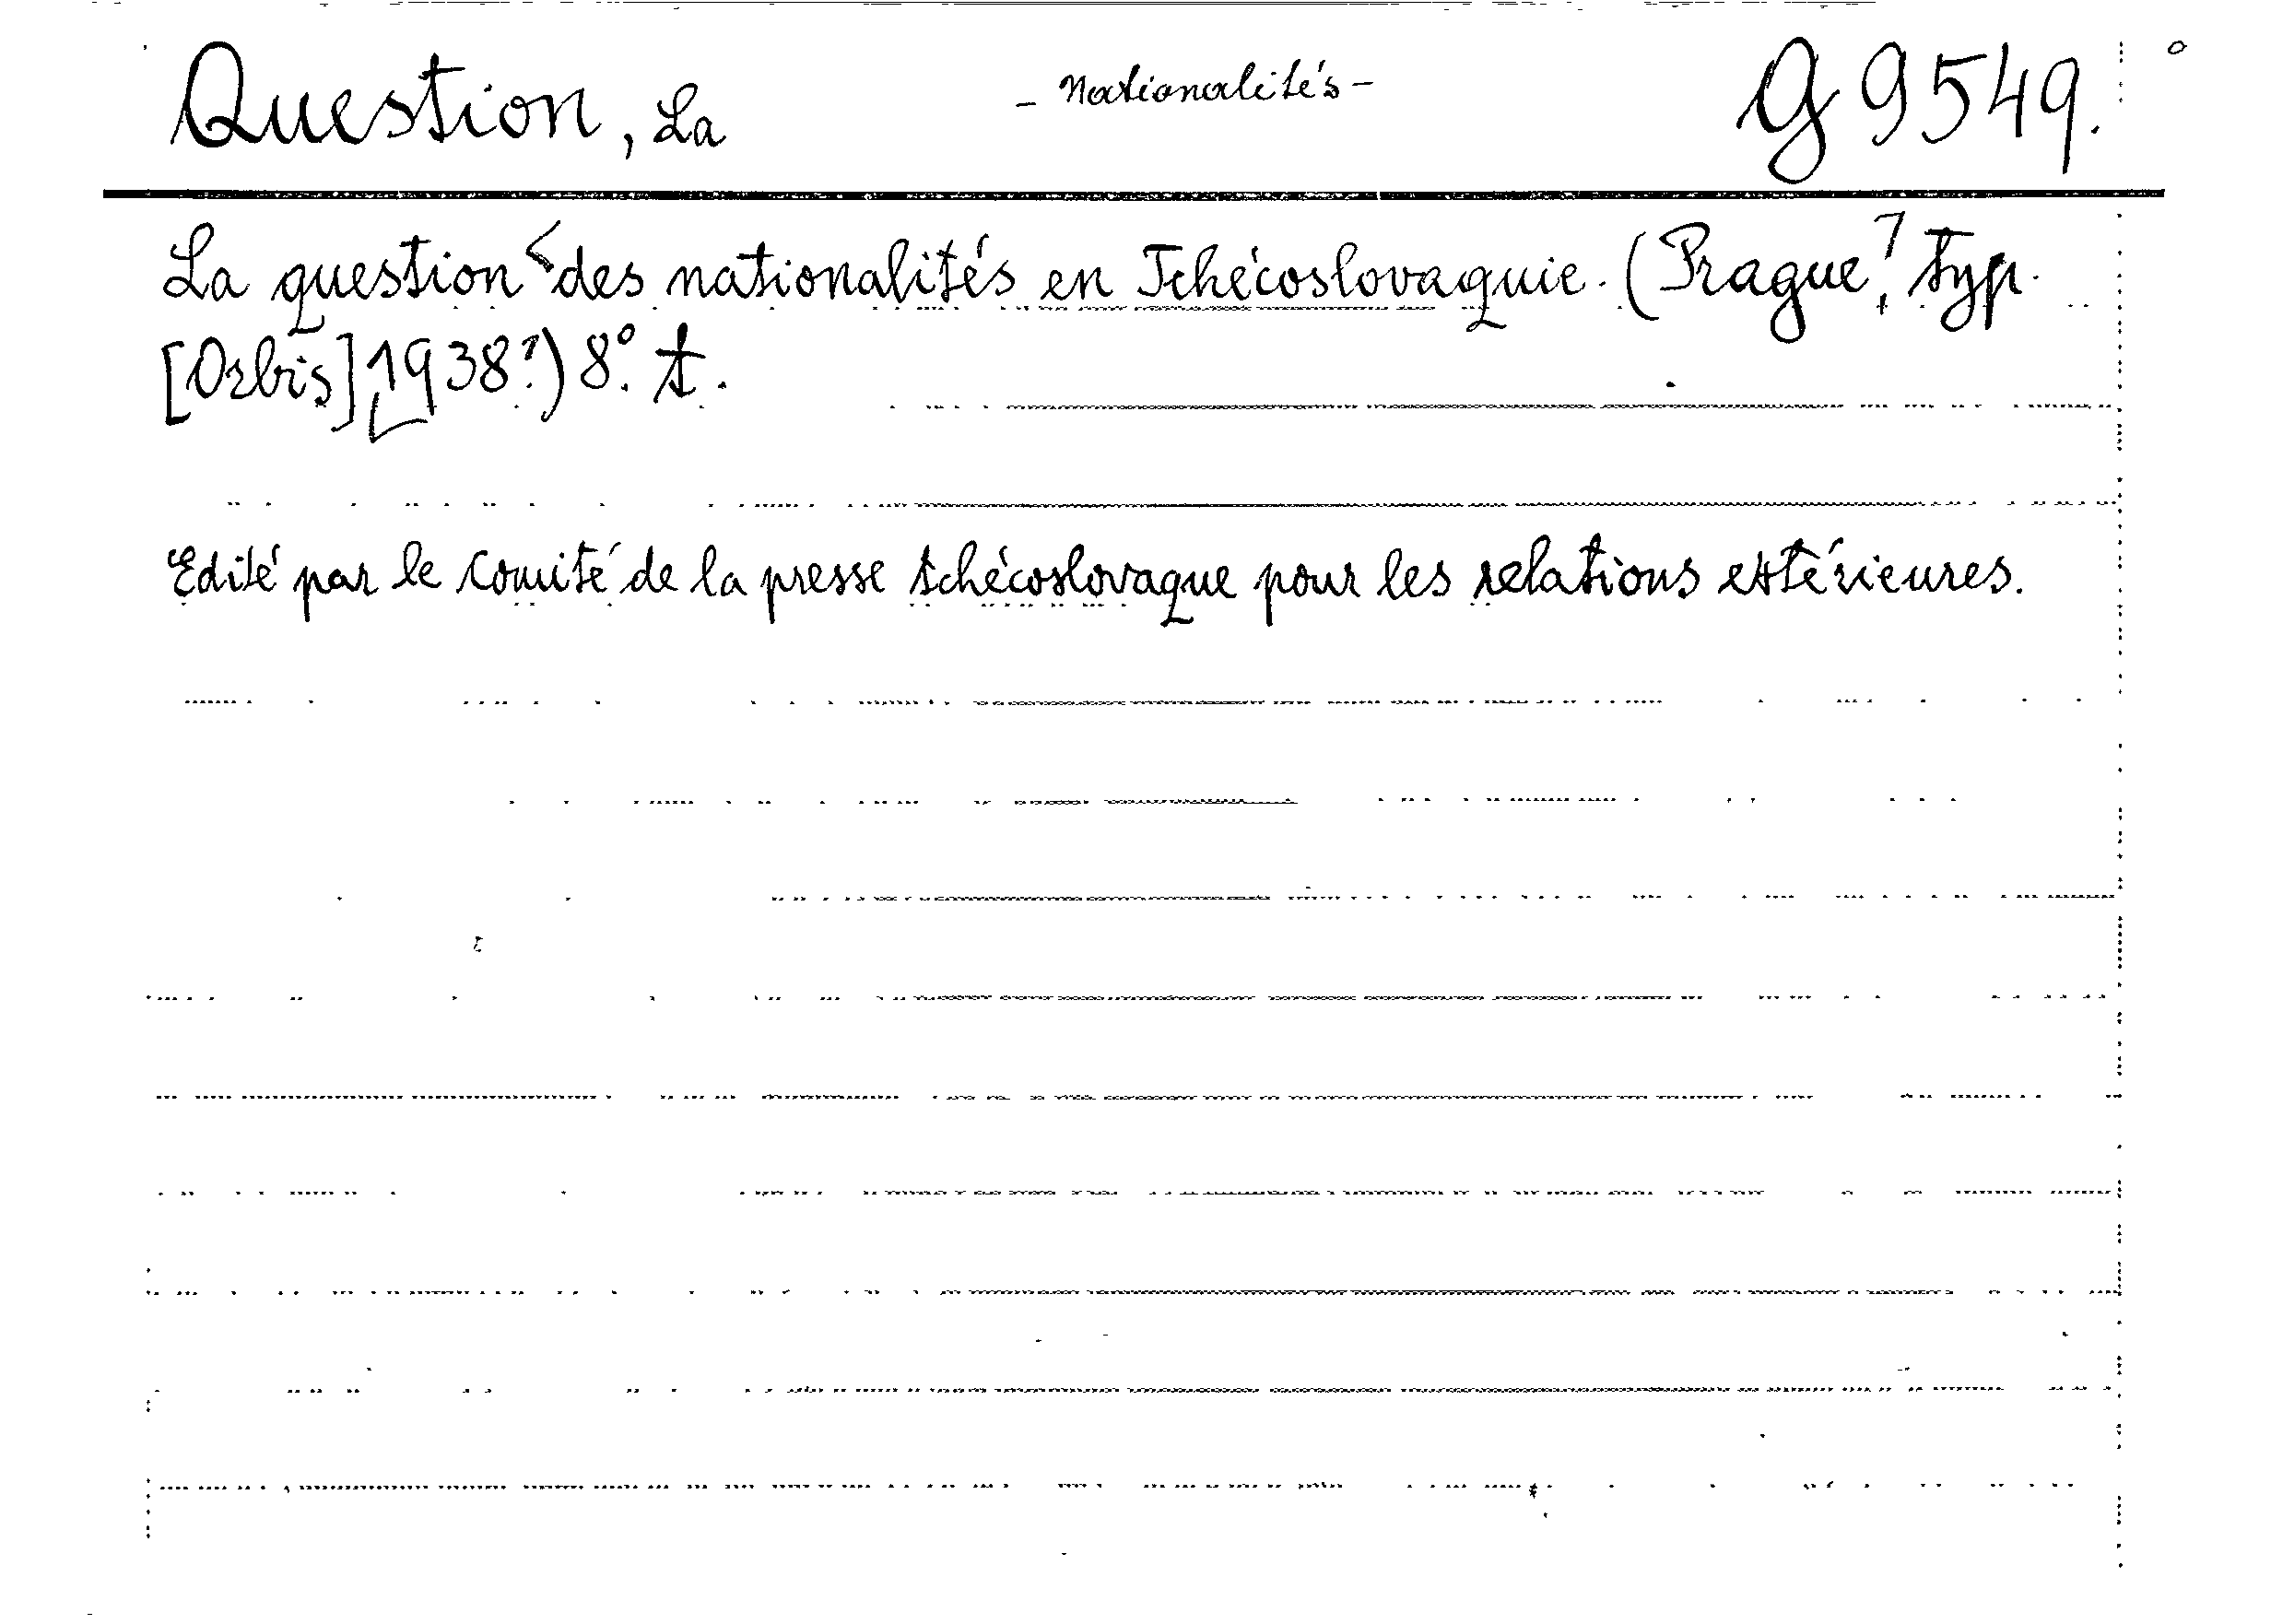 Question, La - Nationalités - G 9549.
La question des nationalités en Tchécoslovaquie. (Prague?, typ.
[Orbis] 1938?) 8°. t.
Edité par le Comité de la presse tchécoslovaque pour les relations extérieures.